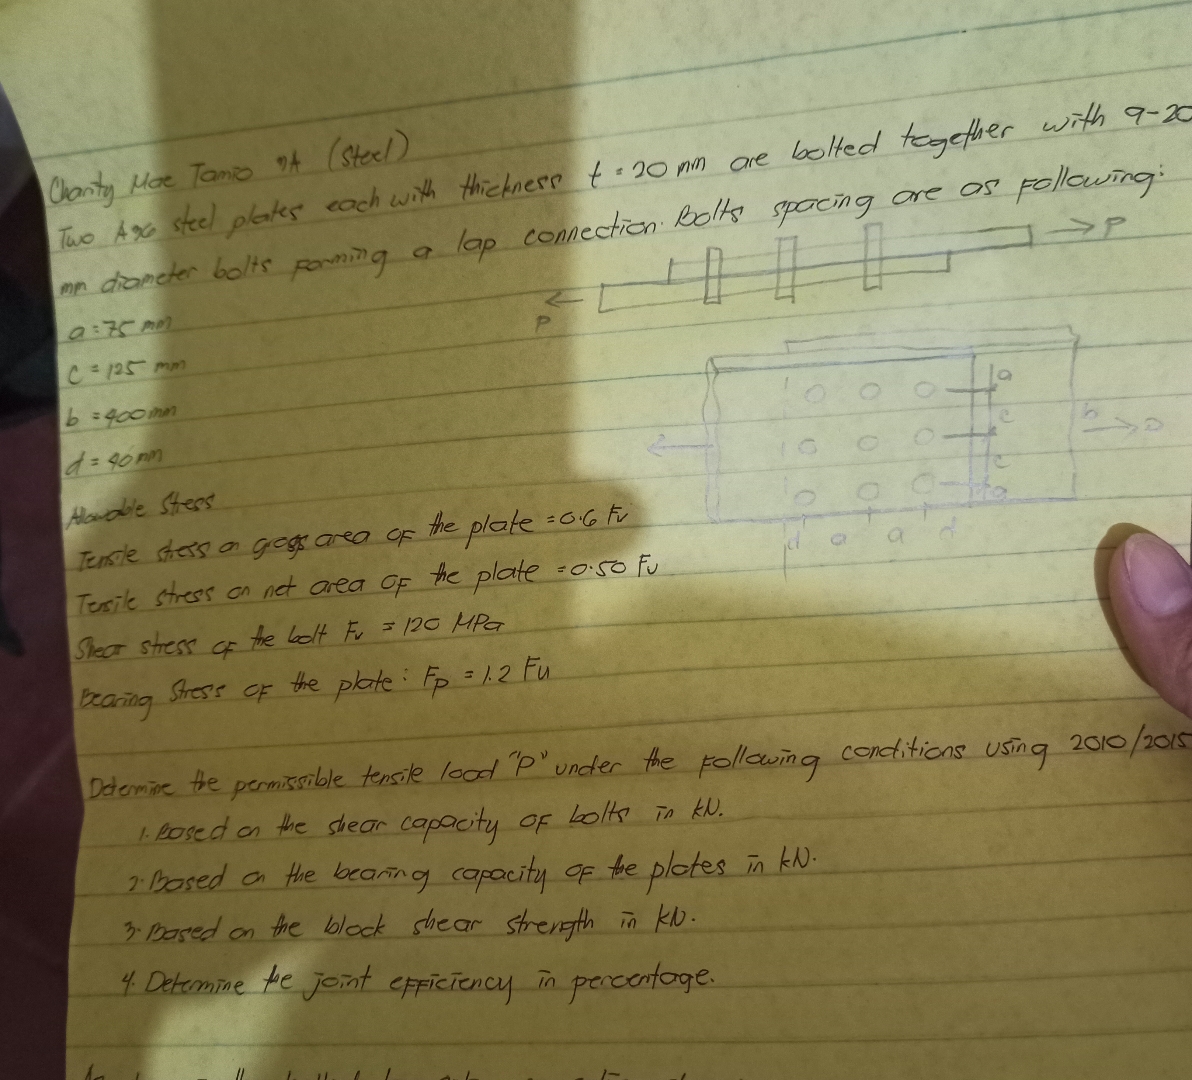 Charity Mae Tamio 7A (Steel)
Two A36 steel plates each with thickness t = 20 mm are bolted together with 9-20
mm diameter bolts forming a lap connection. Bolts spacing are as following:
a = 75 mm
c = 125 mm
b = 400 mm
d = 40 mm
P
P
a
c
b
c
a
d a a d
Allowable Stress
Tensile stress on gross area of the plate = 0.6 Fy
Tensile stress on net area of the plate = 0.50 Fu
Shear stress of the bolt Fv = 120 MPa
Bearing Stress of the plate: Fp = 1.2 Fu
Determine the permissible tensile load "P" under the following conditions using 2010/2015
1. Based on the shear capacity of bolts in kN.
2. Based on the bearing capacity of the plates in kN.
3. Based on the block shear strength in kN.
4. Determine the joint efficiency in percentage.